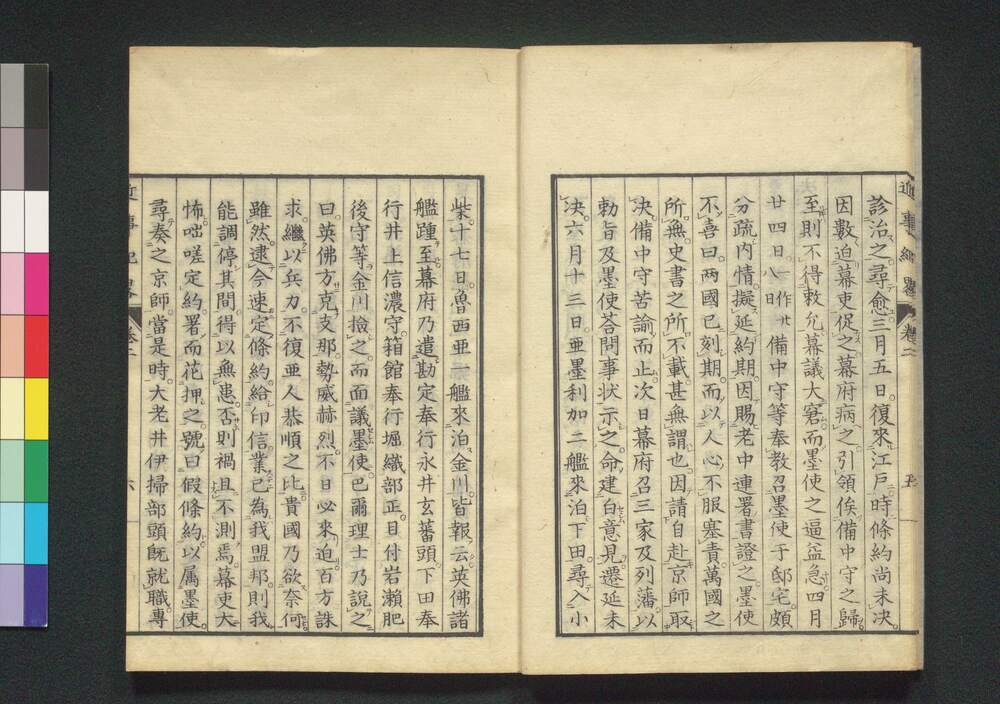 診治之尋愈三月五日復來江戸時條約尚未决
因數迫幕吏促之幕府病之引領俟備中守之歸
至則不得敕允幕議大窘而墨使之逼益急四月
廿四日一作廿八日備中守等奉教召墨使于邸宅頗
分疏内情擬延約期因賜老中連署書證之墨使
不喜曰兩國已刻期而以人心不服塞責萬國之
所無史書之所不載甚無謂也因請自赴京師取
决備中守苦諭而止次日幕府召三家及列藩以
勅旨及墨使荅問事状示之命建白意見遷延未
决六月十三日亜墨利加二艦來泊下田尋入小
近事紀畧 卷二 五
柴十七日魯西亜一艦來泊金川皆報云英佛諸
艦踵至幕府乃遣勘定奉行永井玄蕃頭下田奉
行井上信濃守箱館奉行堀織部正目付岩瀬肥
後守等金川撿之而面議墨使巴爾理士乃說之
曰英佛方克支那勢威赫烈不日必來迫百方誅
求繼以兵力不復亜人恭順之比貴國乃欲奈何
雖然逮今速定條約給印信業已為我盟邦則我
能調停其間得以無患否則禍且不測焉幕吏大
怖咄嗟定約署而花押之號曰假條約以属墨使
尋奏之京師當是時大老井伊掃部頭既就職專
近事紀畧 卷二 六